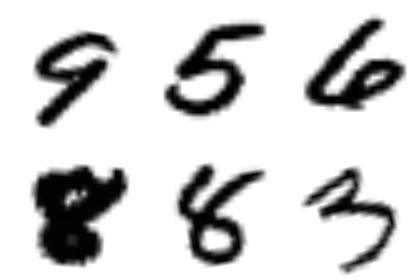 9 5 6
8 8 3